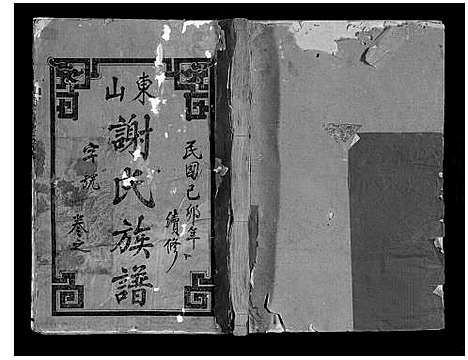 東山
謝氏族譜
民國己卯年
續修
字號
卷之